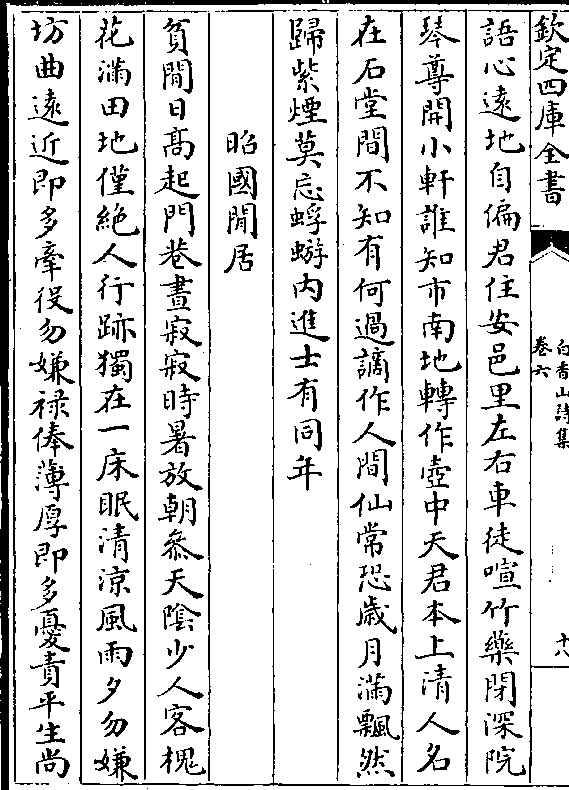 欽定四庫全書
白香山詩集
卷六
十八
語心遠地自偏君住安邑里左右車徒喧竹藥閉深院
琴尊開小軒誰知市南地轉作壺中天君本上清人名
在石堂間不知有何過謫作人間仙常恐歲月滿飄然
歸紫煙莫忘蜉蝣内進士有同年
昭國閒居
貧閒日髙起門巷晝寂寂時暑放朝叅天陰少人客槐
花滿田地僅絶人行跡獨在一床眠清涼風雨夕勿嫌
坊曲遠近即多牽役勿嫌禄俸薄厚即多憂責平生尚